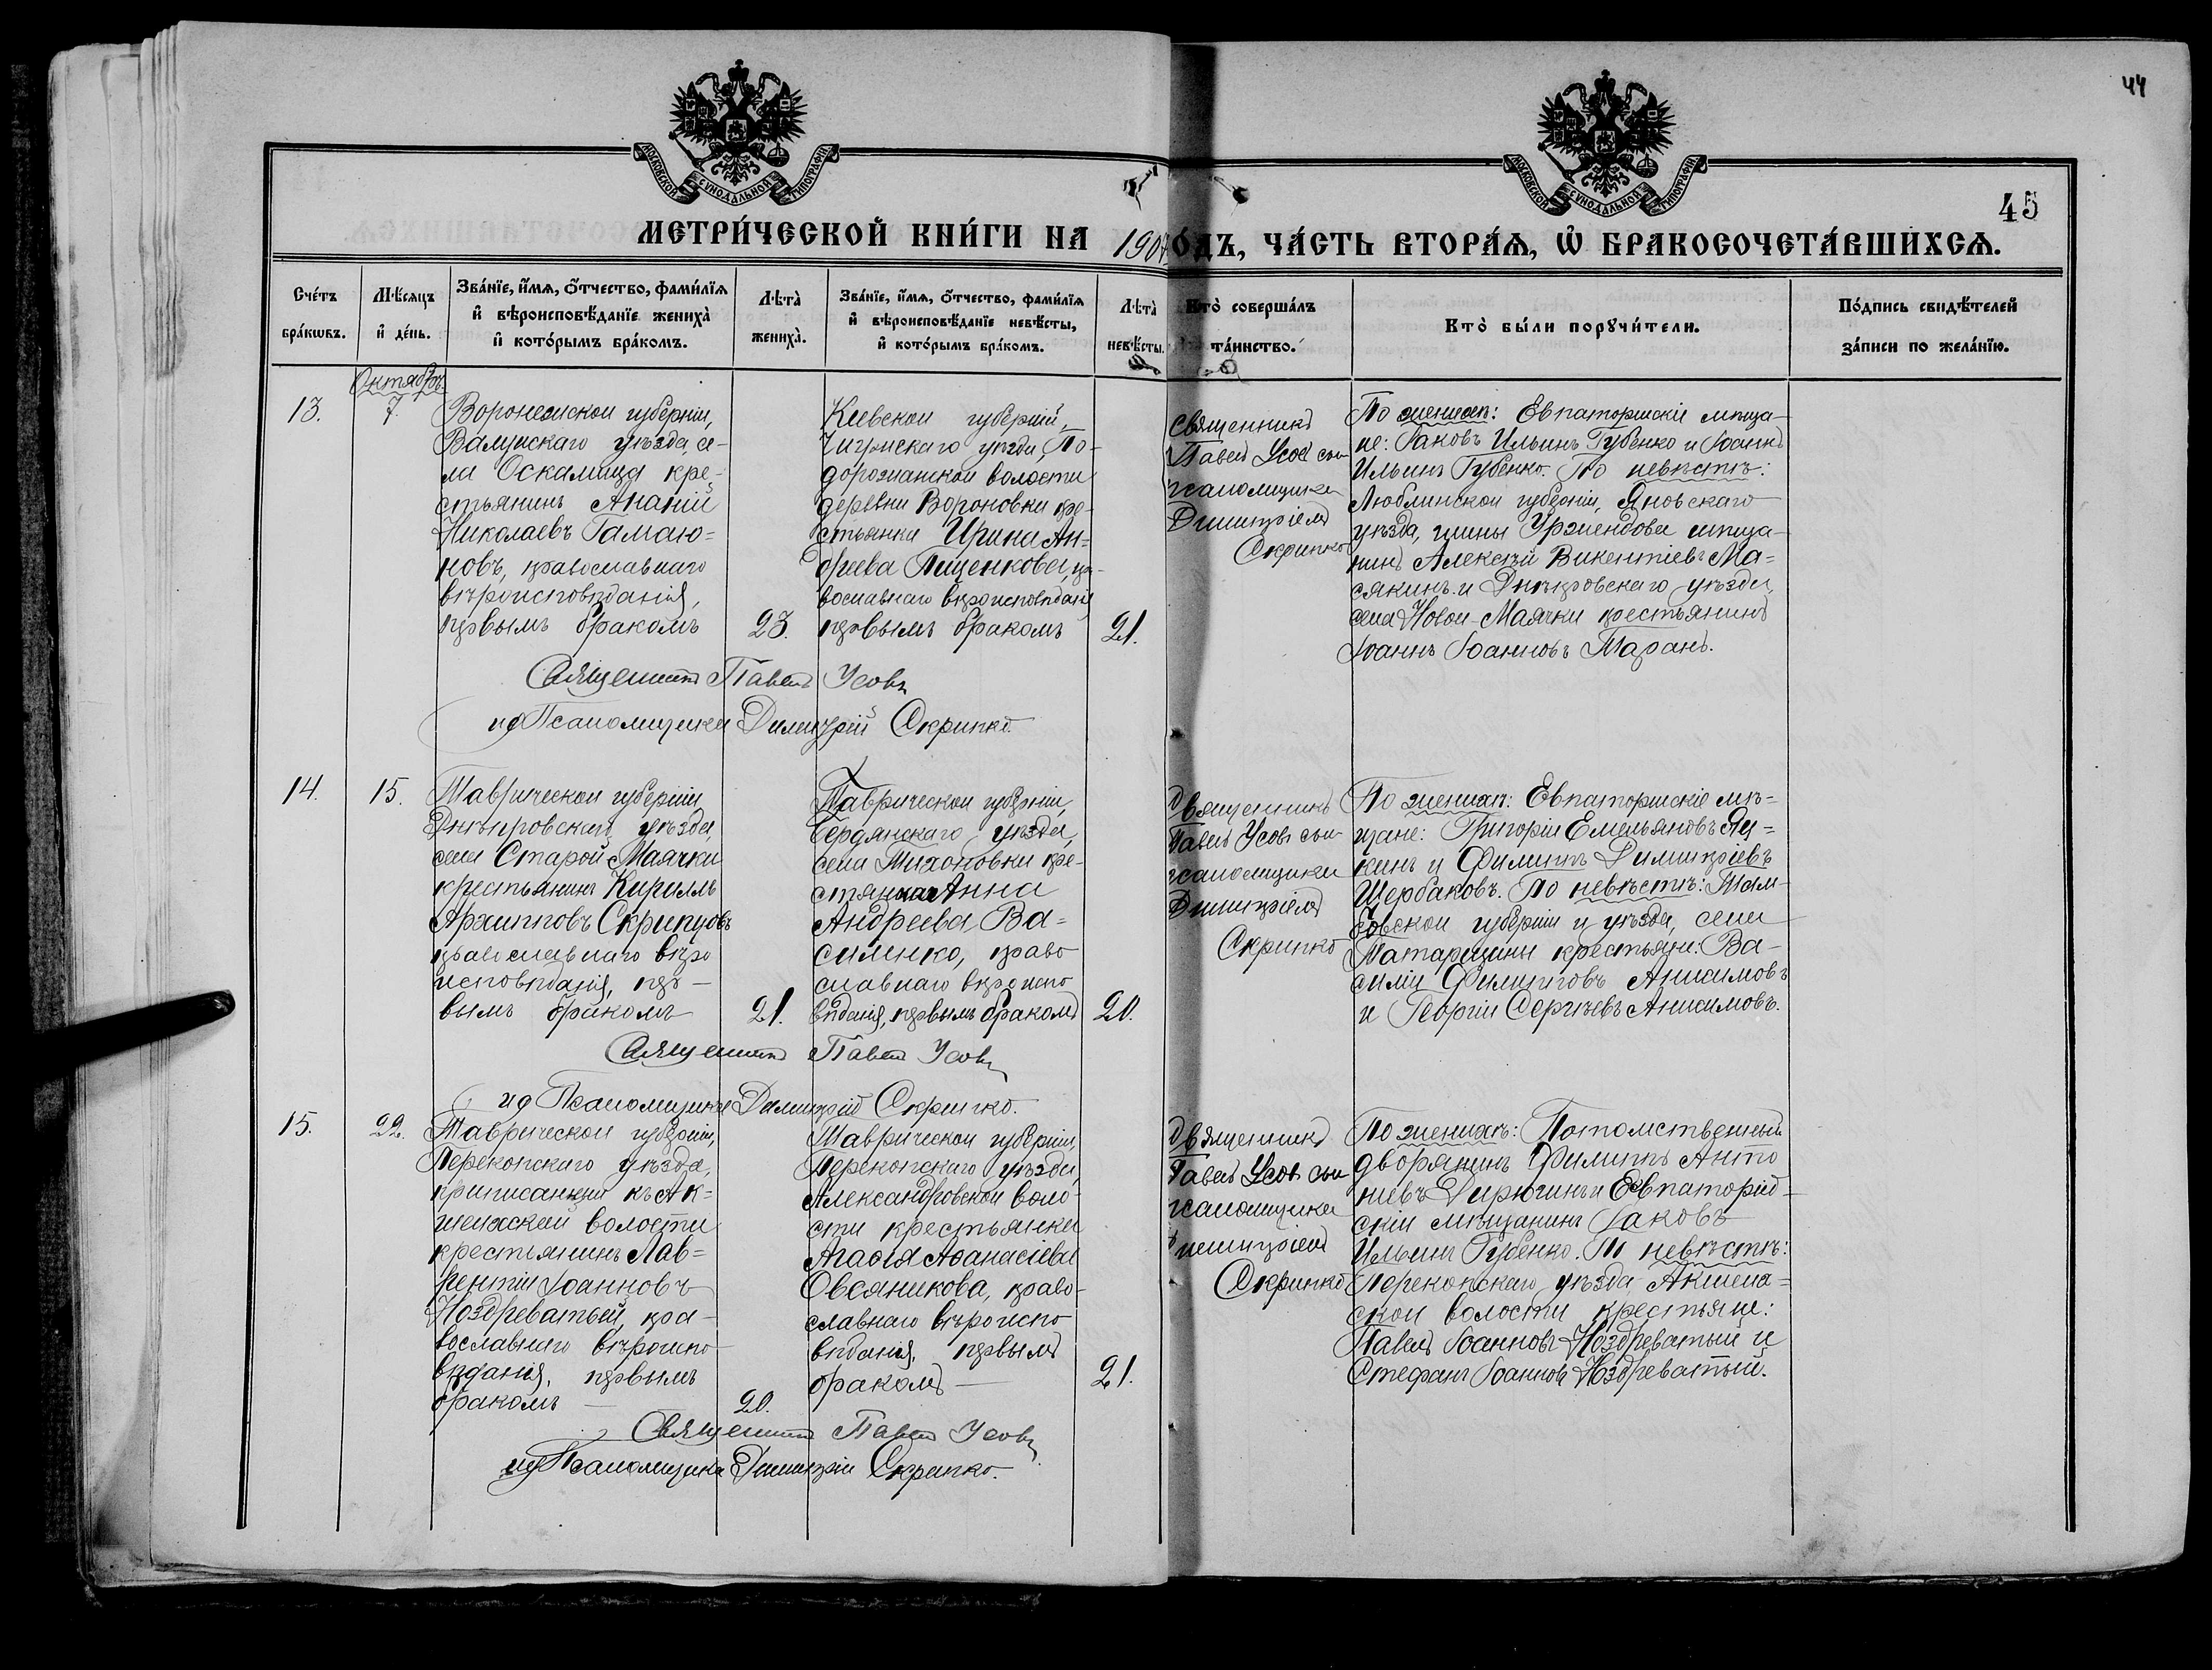 44
45
МОСКОВСКОЙ СѴНОДАЛЬНОЙ ТИПОГРАФІИ
МОСКОВСКОЙ СѴНОДАЛЬНОЙ ТИПОГРАФІИ
МЕТРИ́ЧЕСКОЙ КНИ́ГИ НА 1907 ГО́ДЪ, ЧА́СТЬ ВТОРА́Ѧ, Ѡ҆ БРАКОСОЧЕТА́ВШИХСѦ.
Счéтъ
брáкѡвъ.
Мѣ́сѧцъ
и҆ дéнь.
Звáнїе, и҆́мѧ, ѻ҆́тчество, фамѝлїѧ
и҆ вѣроисповѣ́данїе женихà
и҆ котóрымъ брáкомъ.
Лѣ́тà
женихà.
Звáнїе, и҆́мѧ, ѻ҆́тчество, фамѝлїѧ
и҆ вѣроисповѣ́данїе невѣ́сты,
и҆ котóрымъ брáкомъ.
Лѣ́тà
невѣ́сты.
Ктò совершáлъ
тáинство.
Ктò бы́ли порꙋчи́тели.
Пóдпись свидѣ́телей
зáписи по желáнїю.
Октябрь
13.
7.
Воронежской губерніи,
Валуйскаго уѣзда, се-
ла Оскалища кре-
стьянинъ Ананій
Николаевъ Гамаю=
новъ, православнаго
вѣроисповѣданія,
первымъ бракомъ
23.
Кіевской губерніи,
Чигринскаго уѣзда, По-
дорожнанской волости
деревни Вороновки кре-
стьянка Ирина Ан=
дреева Пищенкова, пра-
вославнаго вѣроисповѣданія
первымъ бракомъ
21.
Священникъ
Павелъ Усовъ съ и
псаломщика
Димитріемъ
Скрипко
По женихѣ: Евпаторійскіе мѣща-
не: Іаковъ Ильинъ Губенко и Іоаннъ
Ильинъ Губенко. По невѣстѣ:
Люблинской губерніи, Яновскаго
уѣзда, гмины Уржендова мѣща-
нинъ Алексѣй Викентіевъ Ма=
сякинъ и Днѣпровскаго уѣзда,
села Новой-Маячки крестьянинъ
Іоаннъ Іоанновъ Таранъ.
Священникъ Павелъ Усовъ
ид Псаломщика Димитрій Скрипко.
14.
15.
Таврической губерніи
Днѣпровскаго уѣзда,
села Старой Маячки
крестьянинъ Кириллъ
Архиповъ Скрипцовъ
православнаго вѣро
исповѣданія, пер-
вымъ бракомъ
21.
Таврической губерніи,
Бердянскаго уѣзда,
села Тихоновки кре-
стянка Анна
Андреева Ва=
силенко, право
славнаго вѣроиспо
вѣданія, первымъ бракомъ
20.
Священникъ
Павелъ Усовъ съ и
псаломщика
Димитріемъ
Скрипко
По женихѣ: Евпаторійскіе мѣ=
щане: Григорій Емельяновъ Яц=
кинъ и Филиппъ Димитріевъ
Щербаковъ. По невѣстѣ: Там-
бовской губерніи и уѣзда, села
Татарщины крестьяне: Ва-
силій Филипповъ Анисимовъ
и Георгій Сергѣевъ Анисимовъ.
Священникъ Павелъ Усовъ
ид Псаломщика Димитрій Скрипко.
15.
22.
Таврической губерніи,
Перекопскаго уѣзда,
приписанный къ Ак=
шеихской волости
крестьянинъ Лав=
рентій Іоанновъ
Ноздреватый, пра-
вославнаго вѣроиспо-
вѣданія, первымъ
бракомъ —
20.
Таврической губерніи,
Перекопскаго уѣзда,
Александровской воло-
сти крестьянка
Агаѳія Аѳанасіева
Овсяникова, право-
славнаго вѣроиспо
вѣданія, первымъ
бракомъ —
21.
Священникъ
Павелъ Усовъ съ и
псаломщика
Димитріемъ
Скрипко
По женихѣ: Потомственный
дворянинъ Филиппъ Анто
ніевъ Дирюгинъ и Евпаторій-
скій мѣщанинъ Іаковъ
Ильинъ Губенко. По невѣстѣ:
Перекопскаго уѣзда Акшеиа=
ской волости крестьяне:
Павелъ Іоанновъ Ноздреватый и
Стефанъ Іоанновъ Ноздреватый.
Священникъ Павелъ Усовъ
ид Псаломщика Димитрій Скрипко.